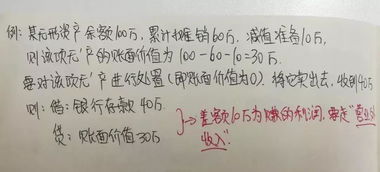 例：某无形资产余额100万，累计摊销60万。减值准备10万
则该项无'产的账面价值为100-60-10=30万.
要对该项无'产进行处置(即账面价值为0)。将它卖出去，收到40万
则：借：银行存款 40万
贷：账面价值30万
}→差额10万为赚的利润，要走"营业外
收入"